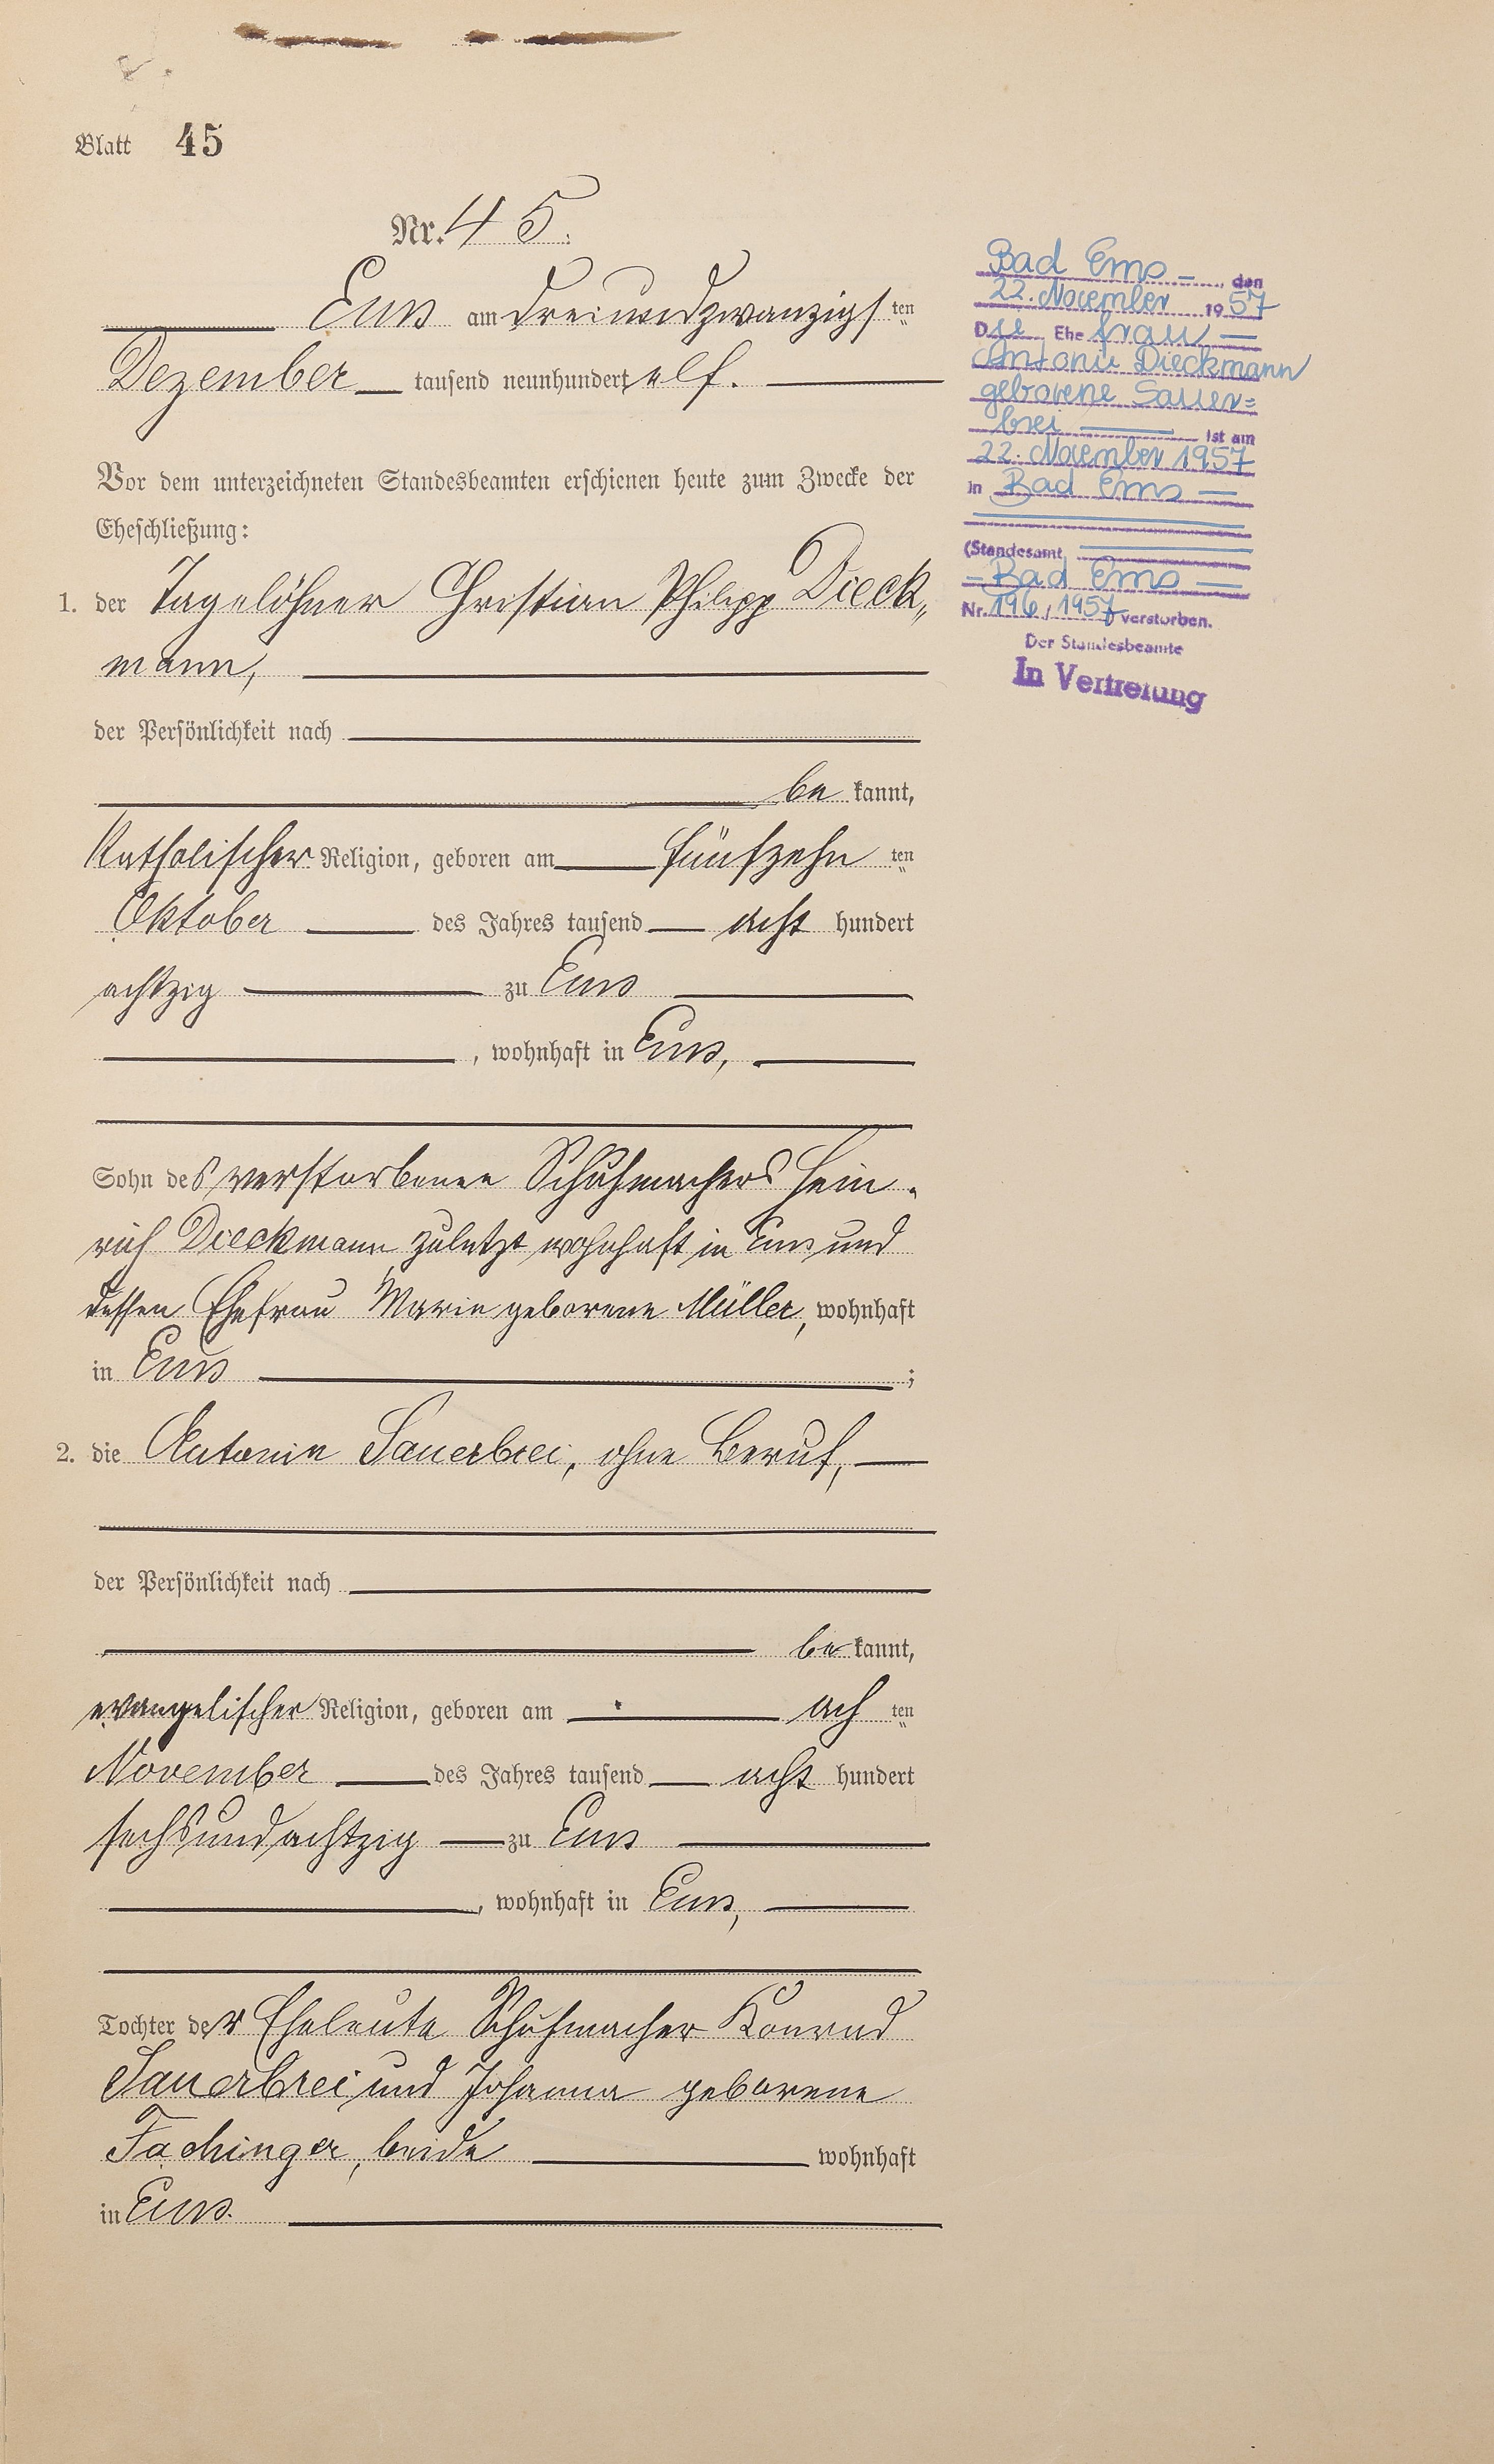 Blatt 45
Nr. 45.
Ems am dreiundzwanzigsten
Dezember tausend neunhundert elf.
Vor dem unterzeichneten Standesbeamten erschienen heute zum Zwecke der
Eheschließung:
1. der Tagelöhner Christian Philipp Dieck„
mann,
der Persönlichkeit nach
bekannt,
katholischer Religion, geboren am fünfzehnten
Oktober des Jahres tausend acht hundert
achtzig zu Ems
, wohnhaft in Ems,
Sohn des verstorbenen Schuhmachers Hein-
rich Dieckmann zuletzt wohnhaft in Ems und
dessen Ehefrau Marie geborene Müller, wohnhaft
in Ems ;
2. die Antonie Sauerbrei, ohne Beruf,
der Persönlichkeit nach
bekannt,
evangelischer Religion, geboren am achten
November des Jahres tausend acht hundert
sechsundachtzig zu Ems
, wohnhaft in Ems,
Tochter der Eheleute Schuhmacher Konrad
Sauerbrei und Johanna geborene
Fachinger, beide wohnhaft
in Ems.
Bad Ems, den
22. November 1957
Die Ehefrau
Antonie Dieckmann
geborene Sauer=
brei ist am
22. November 1957
in Bad Ems
(Standesamt
Bad Ems
Nr. 196/1957 verstorben.
Der Standesbeamte
In Vertretung